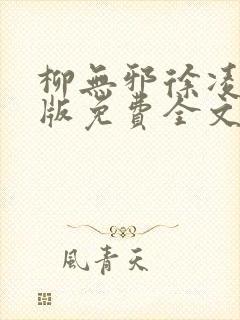 柳無邪徐凌
版免費全文
風青天